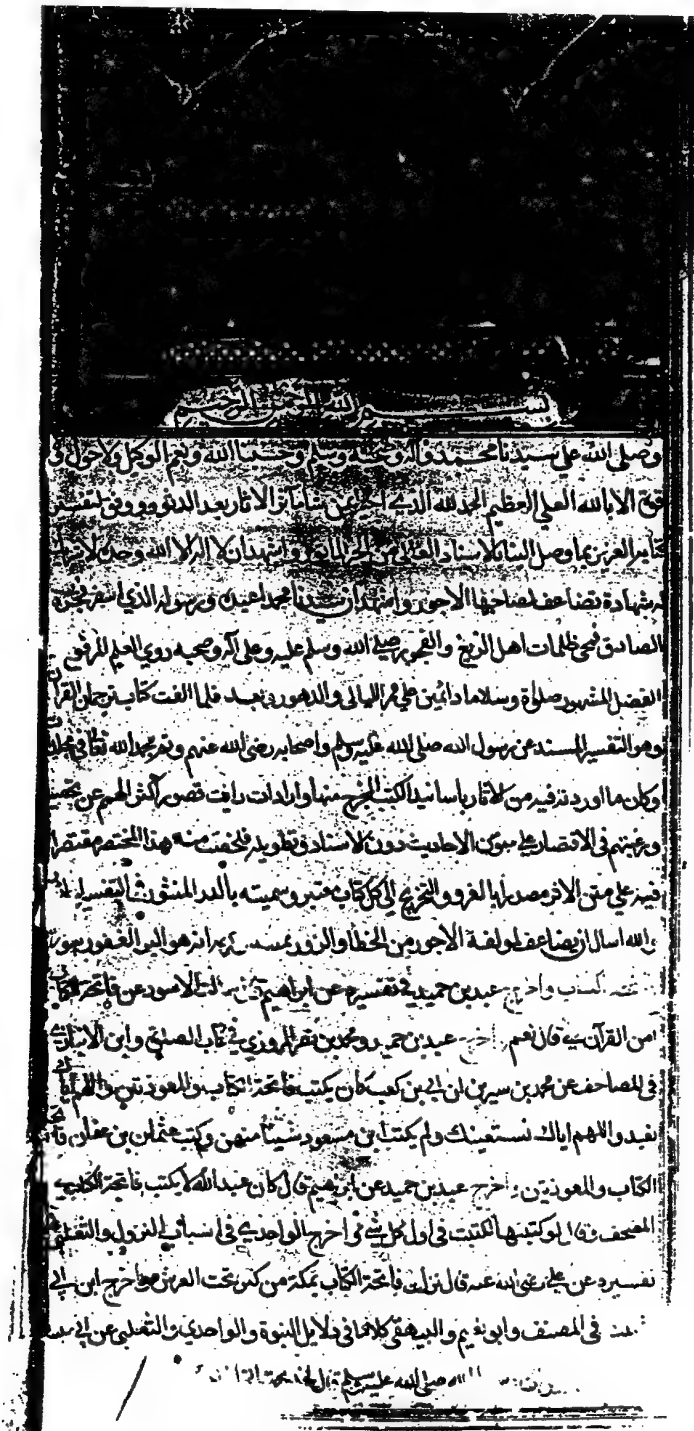 بسم الله الرحمن الرحيم
وصلى الله على سيدنا محمد وآله وصحبه وسلم وحسبنا الله ونعم الوكيل ولا حول ولا
قوة الا بالله العلي العظيم الحمد لله الذي الاثار بعد الدثور ووفق لتفسير
كتابه العزيز بما وصل الينا بالاسناد العالي من الخبر الماثور واشهد ان لا اله الا الله وحده لا شريك
له شهادة تضاعف لصاحبها الاجور واشهد ان سيدنا محمدا عبده ورسوله الذي اسفر فجره
الصادق فمحى ظلمات اهل الزيغ والفجور صلى الله وسلم عليه وعلى آله وصحبه ذوي العلم المرفوع
الفضل المشهور صلوة وسلاما دائمين على ممر الليالي والدهور وبعد فلما الفت كتاب ترجمان القرآن
وهو التفسير المسند عن رسول الله صلى الله عليه وسلم واصحابه رضي الله عنهم وتم بحمد الله تعالى في مجلدات
وكان ما اوردته فيه من الاثار باسانيد الكتب المخرج منها واردات رايت قصور اكثر الهمم عن تحصيله
ورغبتهم في الاقتصار على متون الاحاديث دون الاسناد وتطويله فلخصت منه هذا المختصر مقتصرا
فيه على متن الاثر مصدرا بالعزو والتخريج الى كل كتاب معتبر وسميته بالدر المنثور في التفسير
والله اسال ان يضاعف لمولفه الاجور من الخطا والزور بمنه وكرمه انه هو البر الغفور
الكتاب واخرج عبد بن حميد في تفسيره عن ابراهيم قال سالت الاسود عن فاتحة الكتاب
امن القرآن هي قال نعم واخرج عبد بن حميد ومحمد بن نصر المروزي في كتاب الصلوة وابن الانباري
في المصاحف عن محمد بن سيرين ان ابي بن كعب كان يكتب فاتحة الكتاب والمعوذتين واللهم اياك
نعبد واللهم اياك نستعينك ولم يكتب ابن مسعود شيئا منهن وكتب عثمان بن عفان فاتحة
الكتاب والمعوذتين واخرج عبد بن حميد عن ابراهيم قال كان عبد الله لا يكتب فاتحة الكتاب في
المصحف وقال لو كتبتها لكتبت في اول كل شي واخرج الواحدي في اسباب النزول والثعلبي في
تفسيره عن علي رضي الله عنه قال نزلت فاتحة الكتاب بمكة من كنز تحت العرش واخرج ابن ابي
شيبة في المصنف وابو نعيم والبيهقي كلاهما في دلايل النبوة والواحدي والثعلبي عن ابي ميسرة
الله صلى الله عليه وسلم